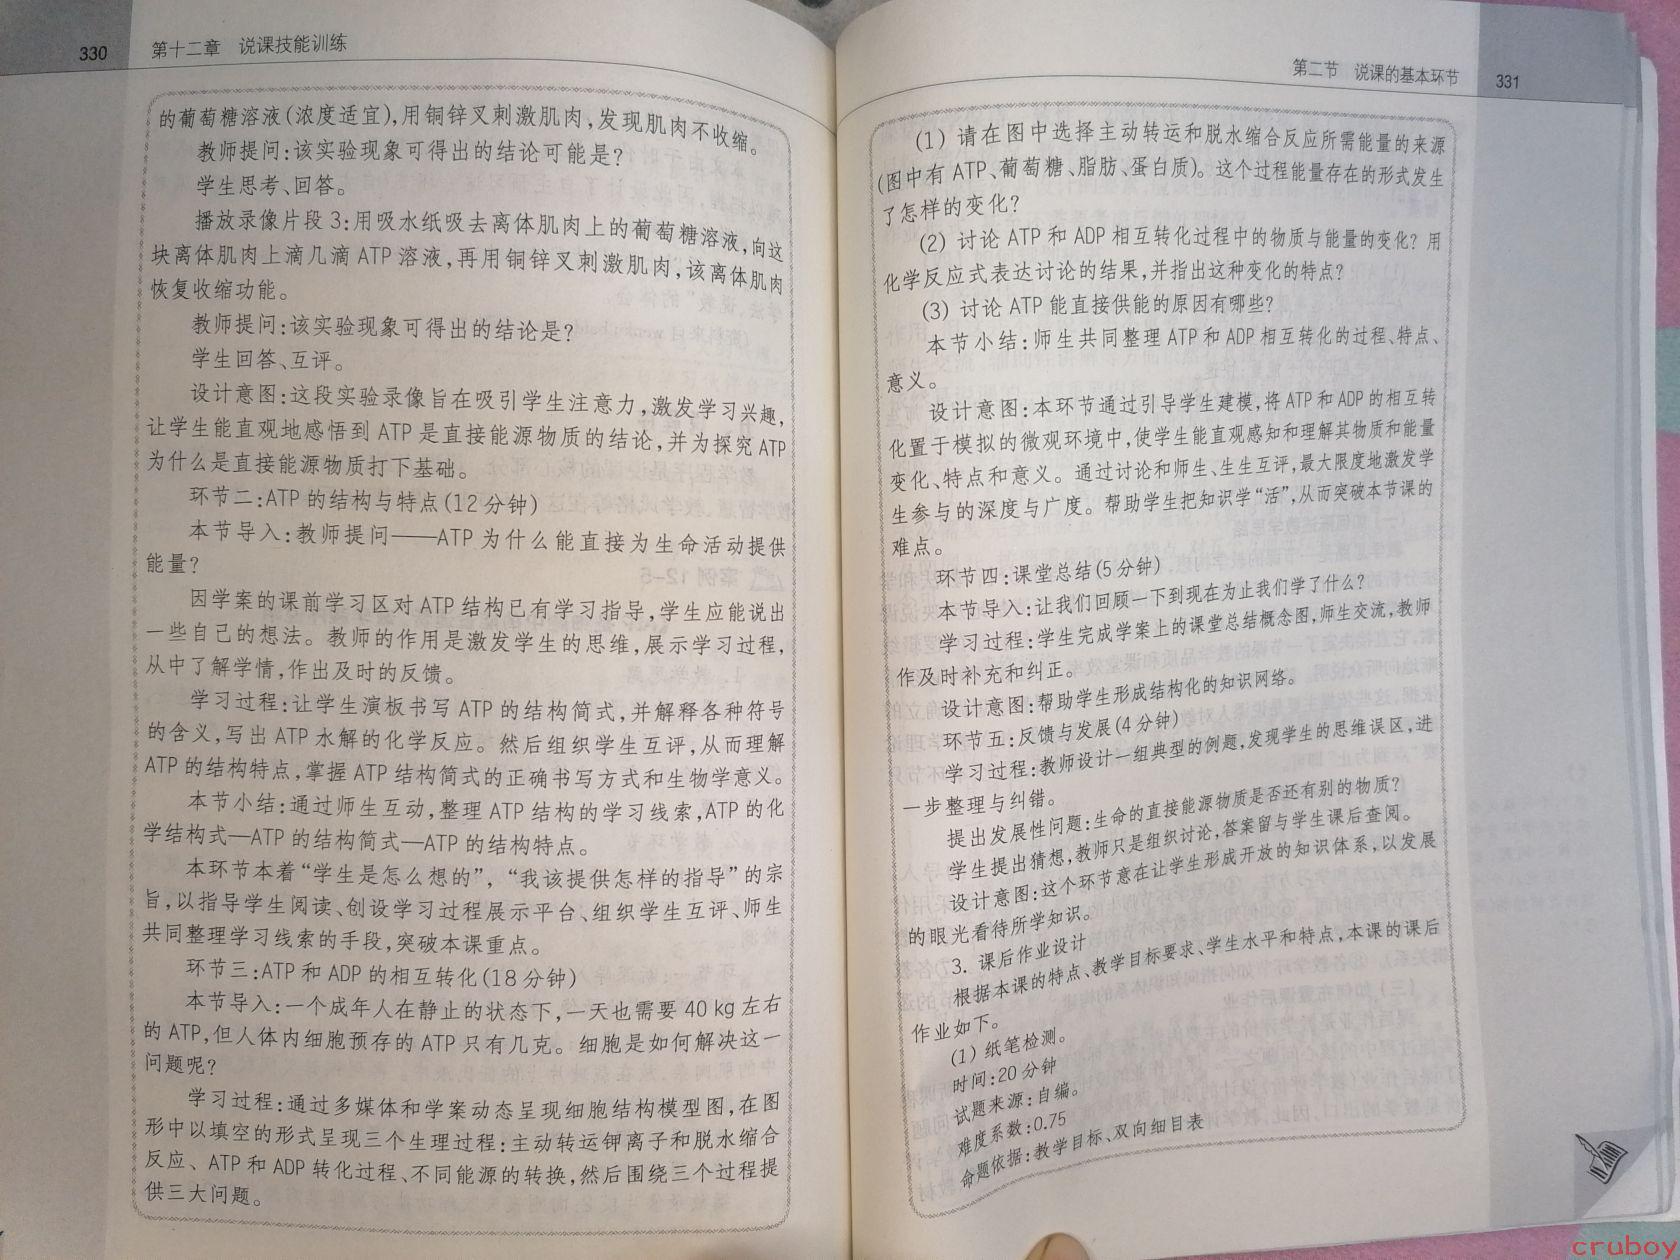 330 第十二章 说课技能训练
的葡萄糖溶液(浓度适宜),用铜锌叉刺激肌肉,发现肌肉不收缩。
教师提问:该实验现象可得出的结论可能是?
学生思考、回答。
播放录像片段 3:用吸水纸吸去离体肌肉上的葡萄糖溶液,向这
块离体肌肉上滴几滴 ATP 溶液,再用铜锌叉刺激肌肉,该离体肌肉
恢复收缩功能。
教师提问:该实验现象可得出的结论是?
学生回答、互评。
设计意图:这段实验录像旨在吸引学生注意力,激发学习兴趣,
让学生能直观地感悟到 ATP 是直接能源物质的结论,并为探究 ATP
为什么是直接能源物质打下基础。
环节二:ATP 的结构与特点(12 分钟)
本节导入:教师提问——ATP 为什么能直接为生命活动提供
能量?
因学案的课前学习区对 ATP 结构已有学习指导,学生应能说出
一些自己的想法。教师的作用是激发学生的思维,展示学习过程,
从中了解学情,作出及时的反馈。
学习过程:让学生演板书写 ATP 的结构简式,并解释各种符号
的含义,写出 ATP 水解的化学反应。然后组织学生互评,从而理解
ATP 的结构特点,掌握 ATP 结构简式的正确书写方式和生物学意义。
本节小结:通过师生互动,整理 ATP 结构的学习线索,ATP 的化
学结构式—ATP 的结构简式—ATP 的结构特点。
本环节本着“学生是怎么想的”,“我该提供怎样的指导”的宗
旨,以指导学生阅读、创设学习过程展示平台、组织学生互评、师生
共同整理学习线索的手段,突破本课重点。
环节三:ATP 和 ADP 的相互转化(18 分钟)
本节导入:一个成年人在静止的状态下,一天也需要 40 kg 左右
的 ATP,但人体内细胞预存的 ATP 只有几克。细胞是如何解决这一
问题呢?
学习过程:通过多媒体和学案动态呈现细胞结构模型图,在图
形中以填空的形式呈现三个生理过程:主动转运钾离子和脱水缩合
反应、ATP 和 ADP 转化过程、不同能源的转换,然后围绕三个过程提
供三大问题。
第二节 说课的基本环节 331
(1) 请在图中选择主动转运和脱水缩合反应所需能量的来源
(图中有 ATP、葡萄糖、脂肪、蛋白质)。这个过程能量存在的形式发生
了怎样的变化?
(2) 讨论 ATP 和 ADP 相互转化过程中的物质与能量的变化?用
化学反应式表达讨论的结果,并指出这种变化的特点?
(3) 讨论 ATP 能直接供能的原因有哪些?
本节小结:师生共同整理 ATP 和 ADP 相互转化的过程、特点、
意义。
设计意图:本环节通过引导学生建模,将 ATP 和 ADP 的相互转
化置于模拟的微观环境中,使学生能直观感知和理解其物质和能量
变化、特点和意义。通过讨论和师生、生生互评,最大限度地激发学
生参与的深度与广度。帮助学生把知识学“活”,从而突破本节课的
难点。
环节四:课堂总结(5 分钟)
本节导入:让我们回顾一下到现在为止我们学了什么?
学习过程:学生完成学案上的课堂总结概念图,师生交流,教师
作及时补充和纠正。
设计意图:帮助学生形成结构化的知识网络。
环节五:反馈与发展(4 分钟)
学习过程:教师设计一组典型的例题,发现学生的思维误区,进
一步整理与纠错。
提出发展性问题:生命的直接能源物质是否还有别的物质?
学生提出猜想,教师只是组织讨论,答案留与学生课后查阅。
设计意图:这个环节意在让学生形成开放的知识体系,以发展
的眼光看待所学知识。
3. 课后作业设计
根据本课的特点、教学目标要求、学生水平和特点,本课的课后
作业如下。
(1) 纸笔检测。
时间:20 分钟
试题来源:自编。
难度系数:0.75
命题依据:教学目标、双向细目表
cruboy